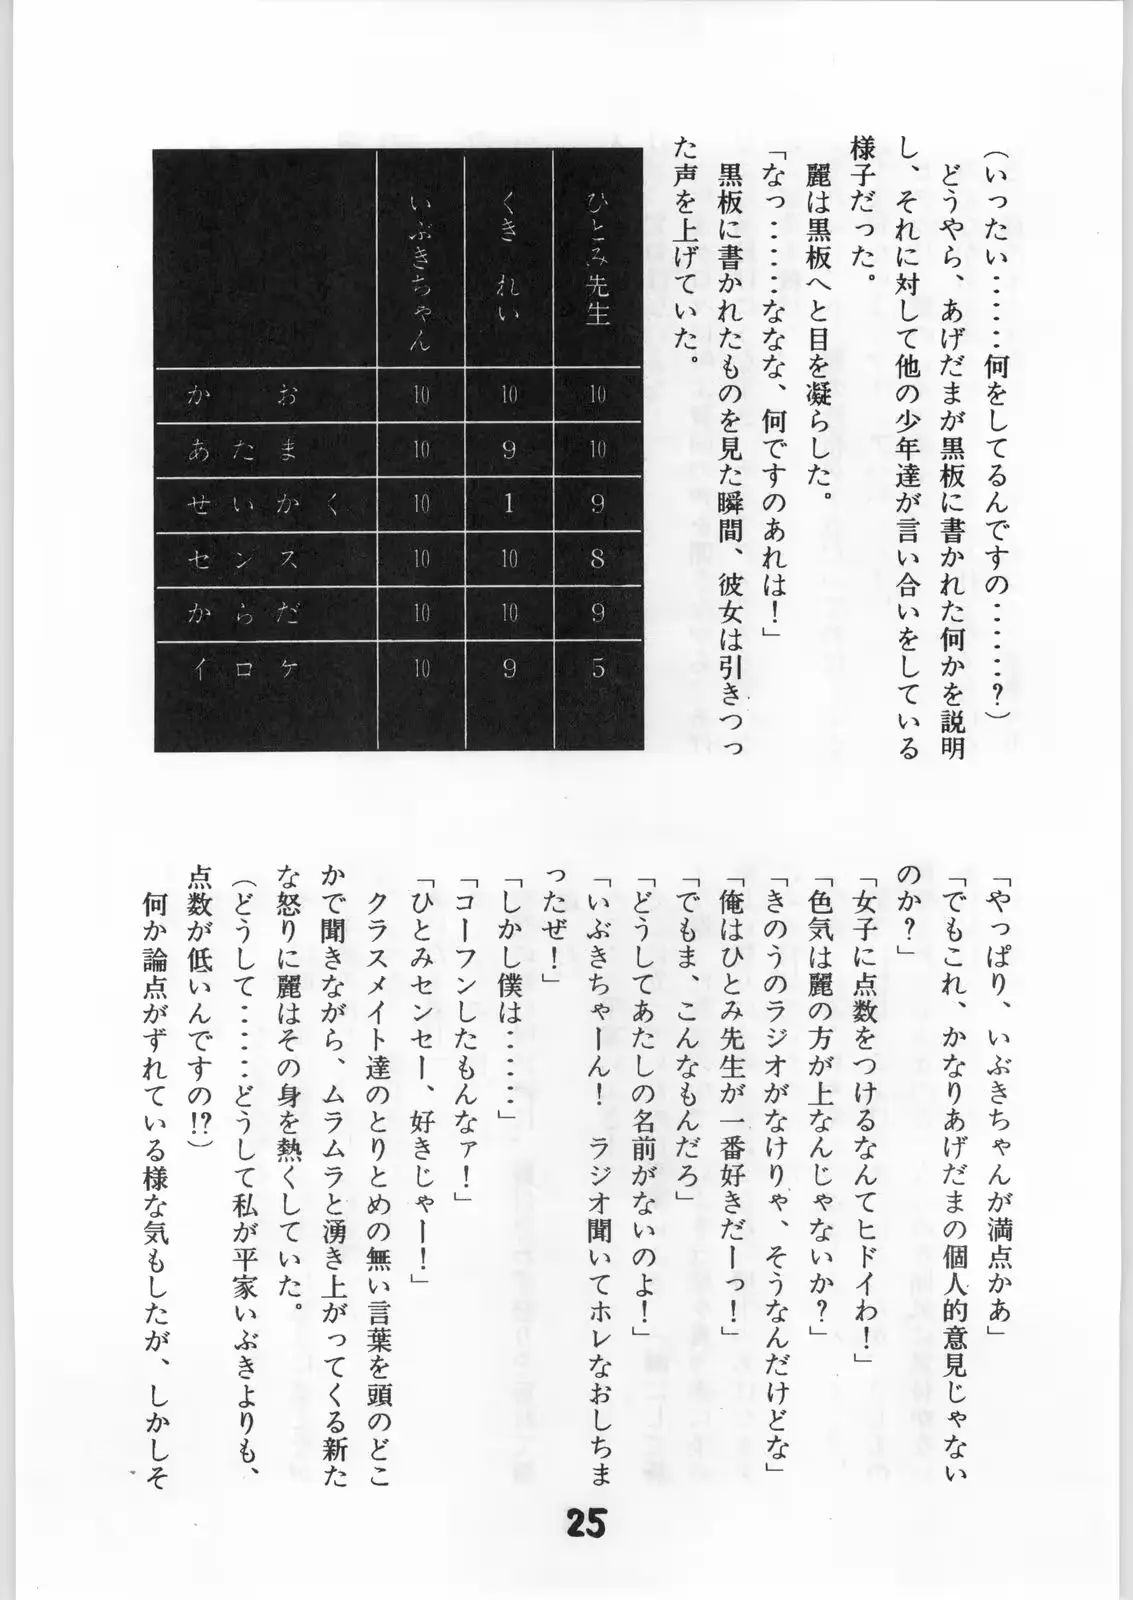 (いったい‥‥‥何をしてるんですの‥‥‥?)
　どうやら、あげだまが黒板に書かれた何かを説明
し、それに対して他の少年達が言い合いをしている
様子だった。
　麗は黒板へと目を凝らした。
「なっ‥‥‥ななな、何ですのあれは!」
　黒板に書かれたものを見た瞬間、彼女は引きつっ
た声を上げていた。
いぶきちゃん　くき れい　ひとみ先生
かお 10 10 10
あたま 10 9 10
せいかく 10 1 9
センス 10 10 8
からだ 10 10 9
イロケ 10 9 5
「やっぱり、いぶきちゃんが満点かあ」
「でもこれ、かなりあげだまの個人的意見じゃない
のか?」
「女子に点数をつけるなんてヒドイわ!」
「色気は麗の方が上なんじゃないか?」
「きのうのラジオがなけりゃ、そうなんだけどな」
「俺はひとみ先生が一番好きだーっ!」
「でもま、こんなもんだろ」
「どうしてあたしの名前がないのよ!」
「いぶきちゃーん!　ラジオ聞いてホレなおしちま
ったぜ!」
「しかし僕は‥‥‥」
「コーフンしたもんなァ!」
「ひとみセンセー、好きじゃー!」
　クラスメイト達のとりとめの無い言葉を頭のどこ
かで聞きながら、ムラムラと湧き上がってくる新た
な怒りに麗はその身を熱くしていた。
(どうして‥‥‥どうして私が平家いぶきよりも、
点数が低いんですの!?)
　何か論点がずれている様な気もしたが、しかしそ
25